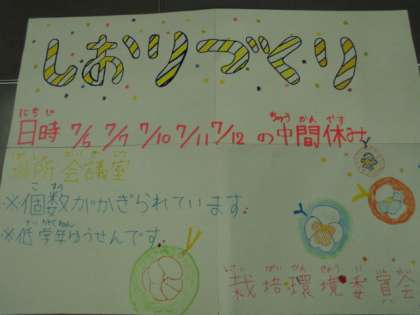 しおりづくり
にちじ
日時 7/6 7/7 7/10 7/11 7/12 の中間休み
ちゅうかんやす
場所 会議室
※個数がかぎられています。
こすう
※低学年ゆうせんです。
ていがくねん
さいばいかんきょういいんかい
栽培環境委員会